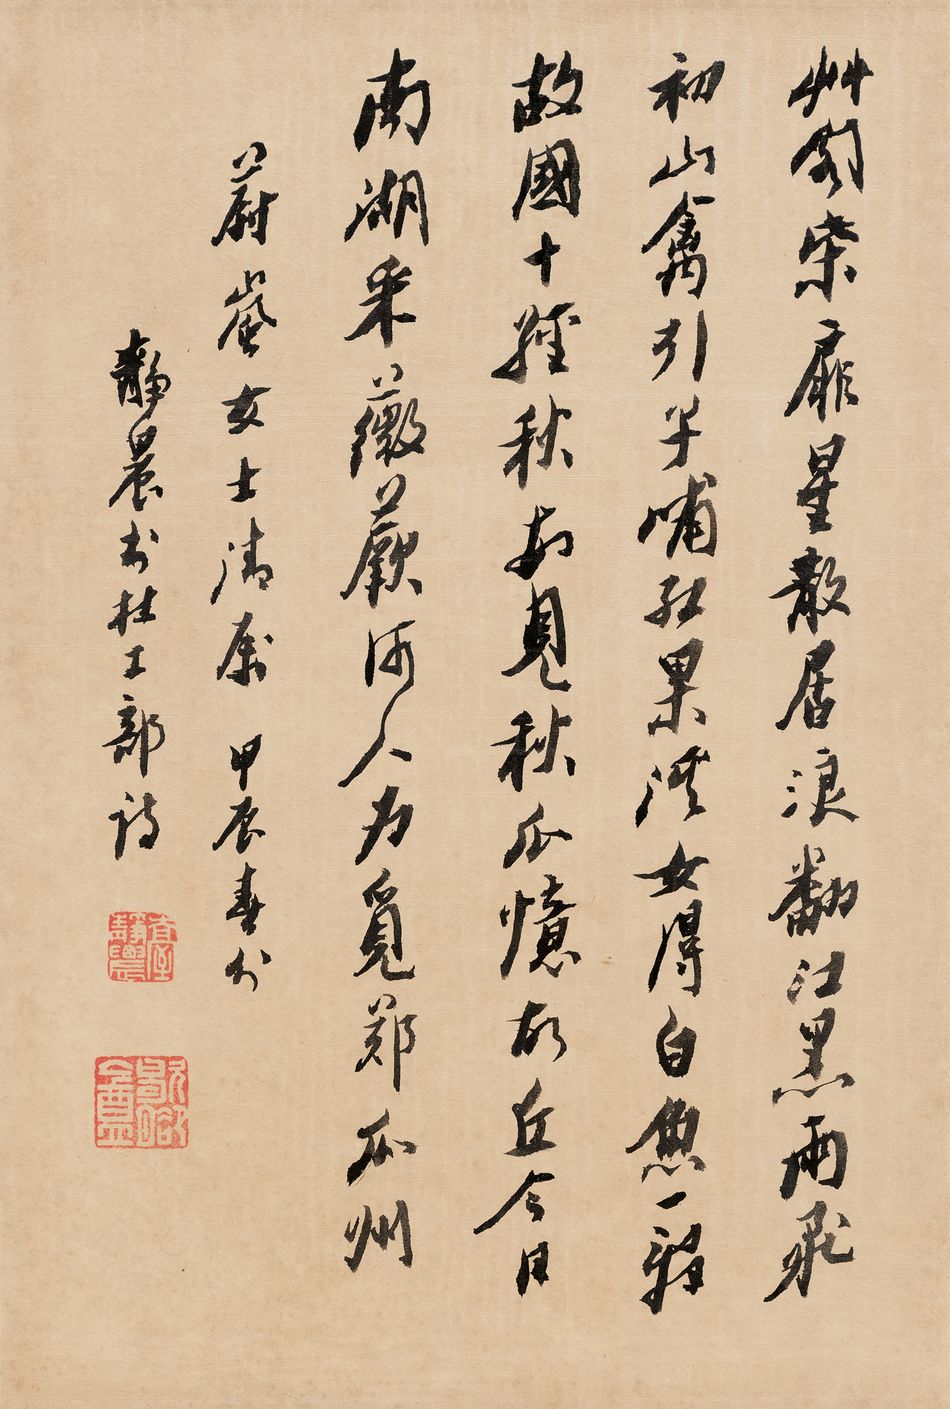 艸閣柴扉星散居浪翻江黑雨飛
初山禽引子哺紅果溪女得白魚一辭
故國十經秋每見秋瓜憶故丘今日
南湖采薇蕨何人為覓鄭瓜州
蔚嵐女士清属 甲辰春分
靜農书杜工部詩
臺靜農
歇腳盦